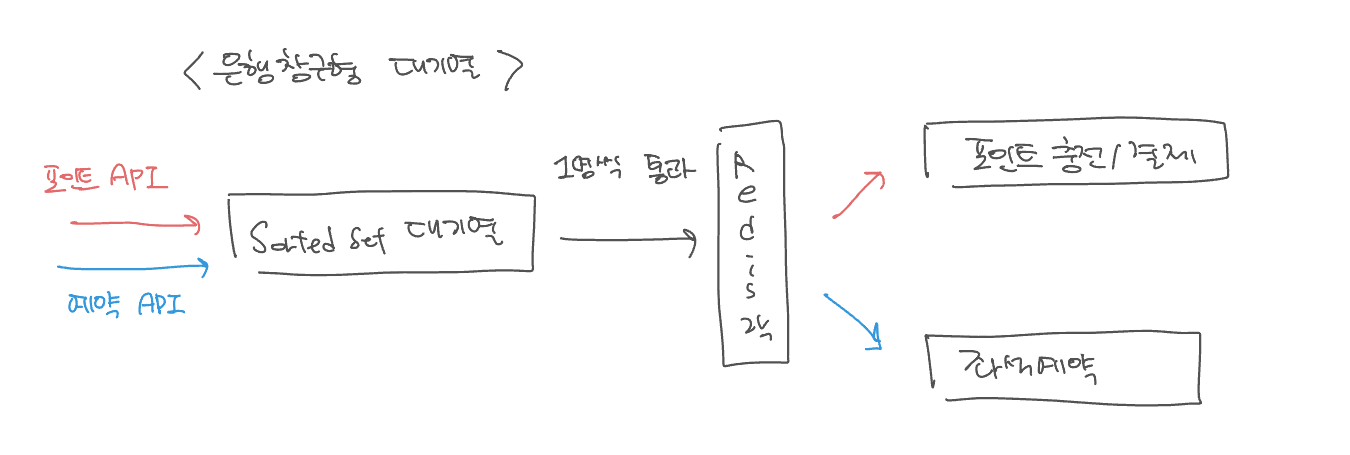 < 은행창구형 대기열 >
포인트 API
예약 API
Sorted Set 대기열
1명씩 통과
Redis 락
포인트 충전/결제
좌석예약